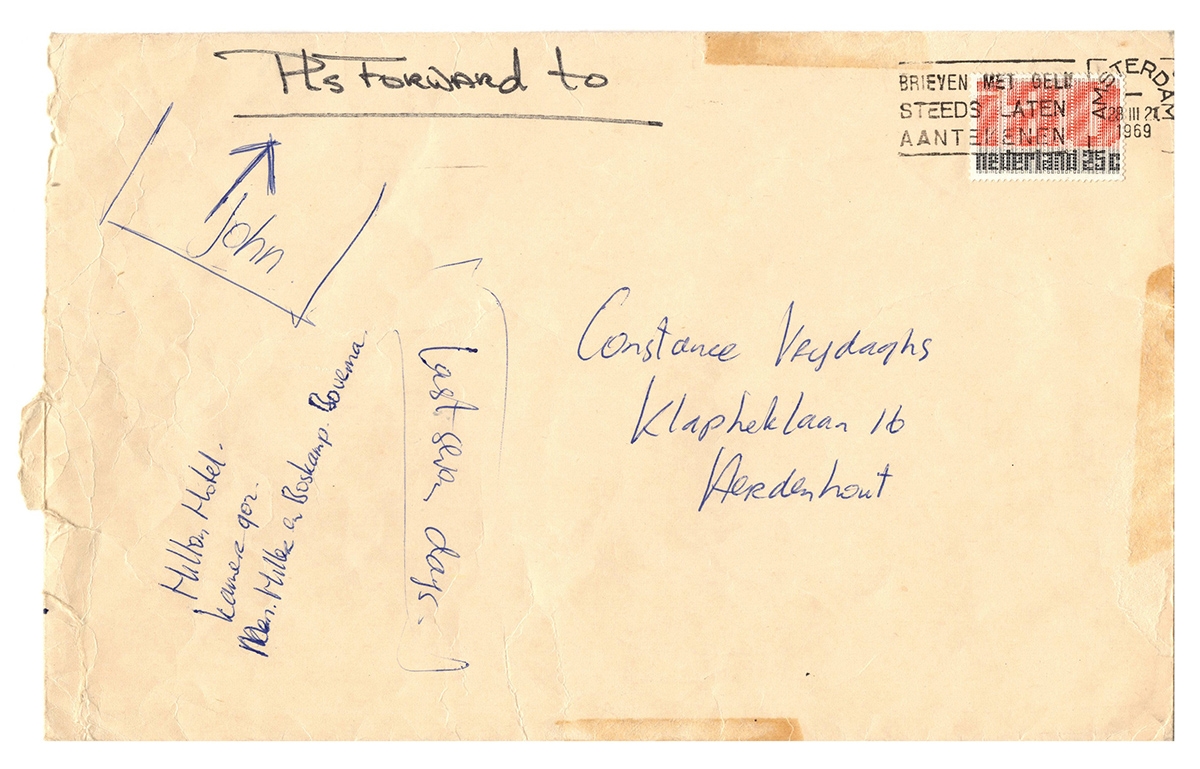 Pls FORWARD to
BRIEVEN MET GELD
STEEDS LATEN
AANTEKENEN
AMSTERDAM
28 III 21
1969
nederland 25 c
John
Constance Vrijdaghs
Klapheklaan 16
Aerdenhout
Last seven days.
Hilton Hotel.
kamer 902.
Miller en Boskamp. Bovema.